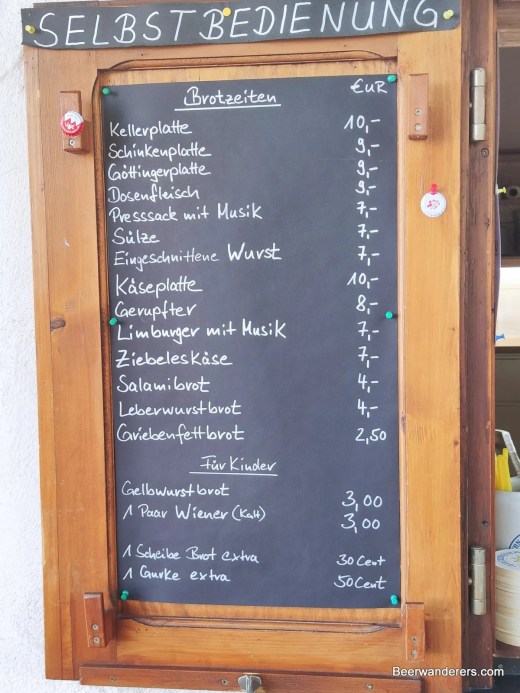 SELBSTBEDIENUNG
Brotzeiten EUR
Kellerplatte 10,-
Schinkenplatte 9,-
Göttingerplatte 9,-
Dosenfleisch 9,-
Presssack mit Musik 7,-
Sülze 7,-
Eingeschnittene Wurst 7,-
Käseplatte 10,-
Gerupfter 8,-
Limburger mit Musik 7,-
Ziebeleskäse 7,-
Salamibrot 4,-
Leberwurstbrot 4,-
Griebenfettbrot 2,50
Für Kinder
Gelbwurstbrot 3,00
1 Paar Wiener (Kalt) 3,00
1 Scheibe Brot extra 30 Cent
1 Gurke extra 50 Cent
Beerwanderers.com